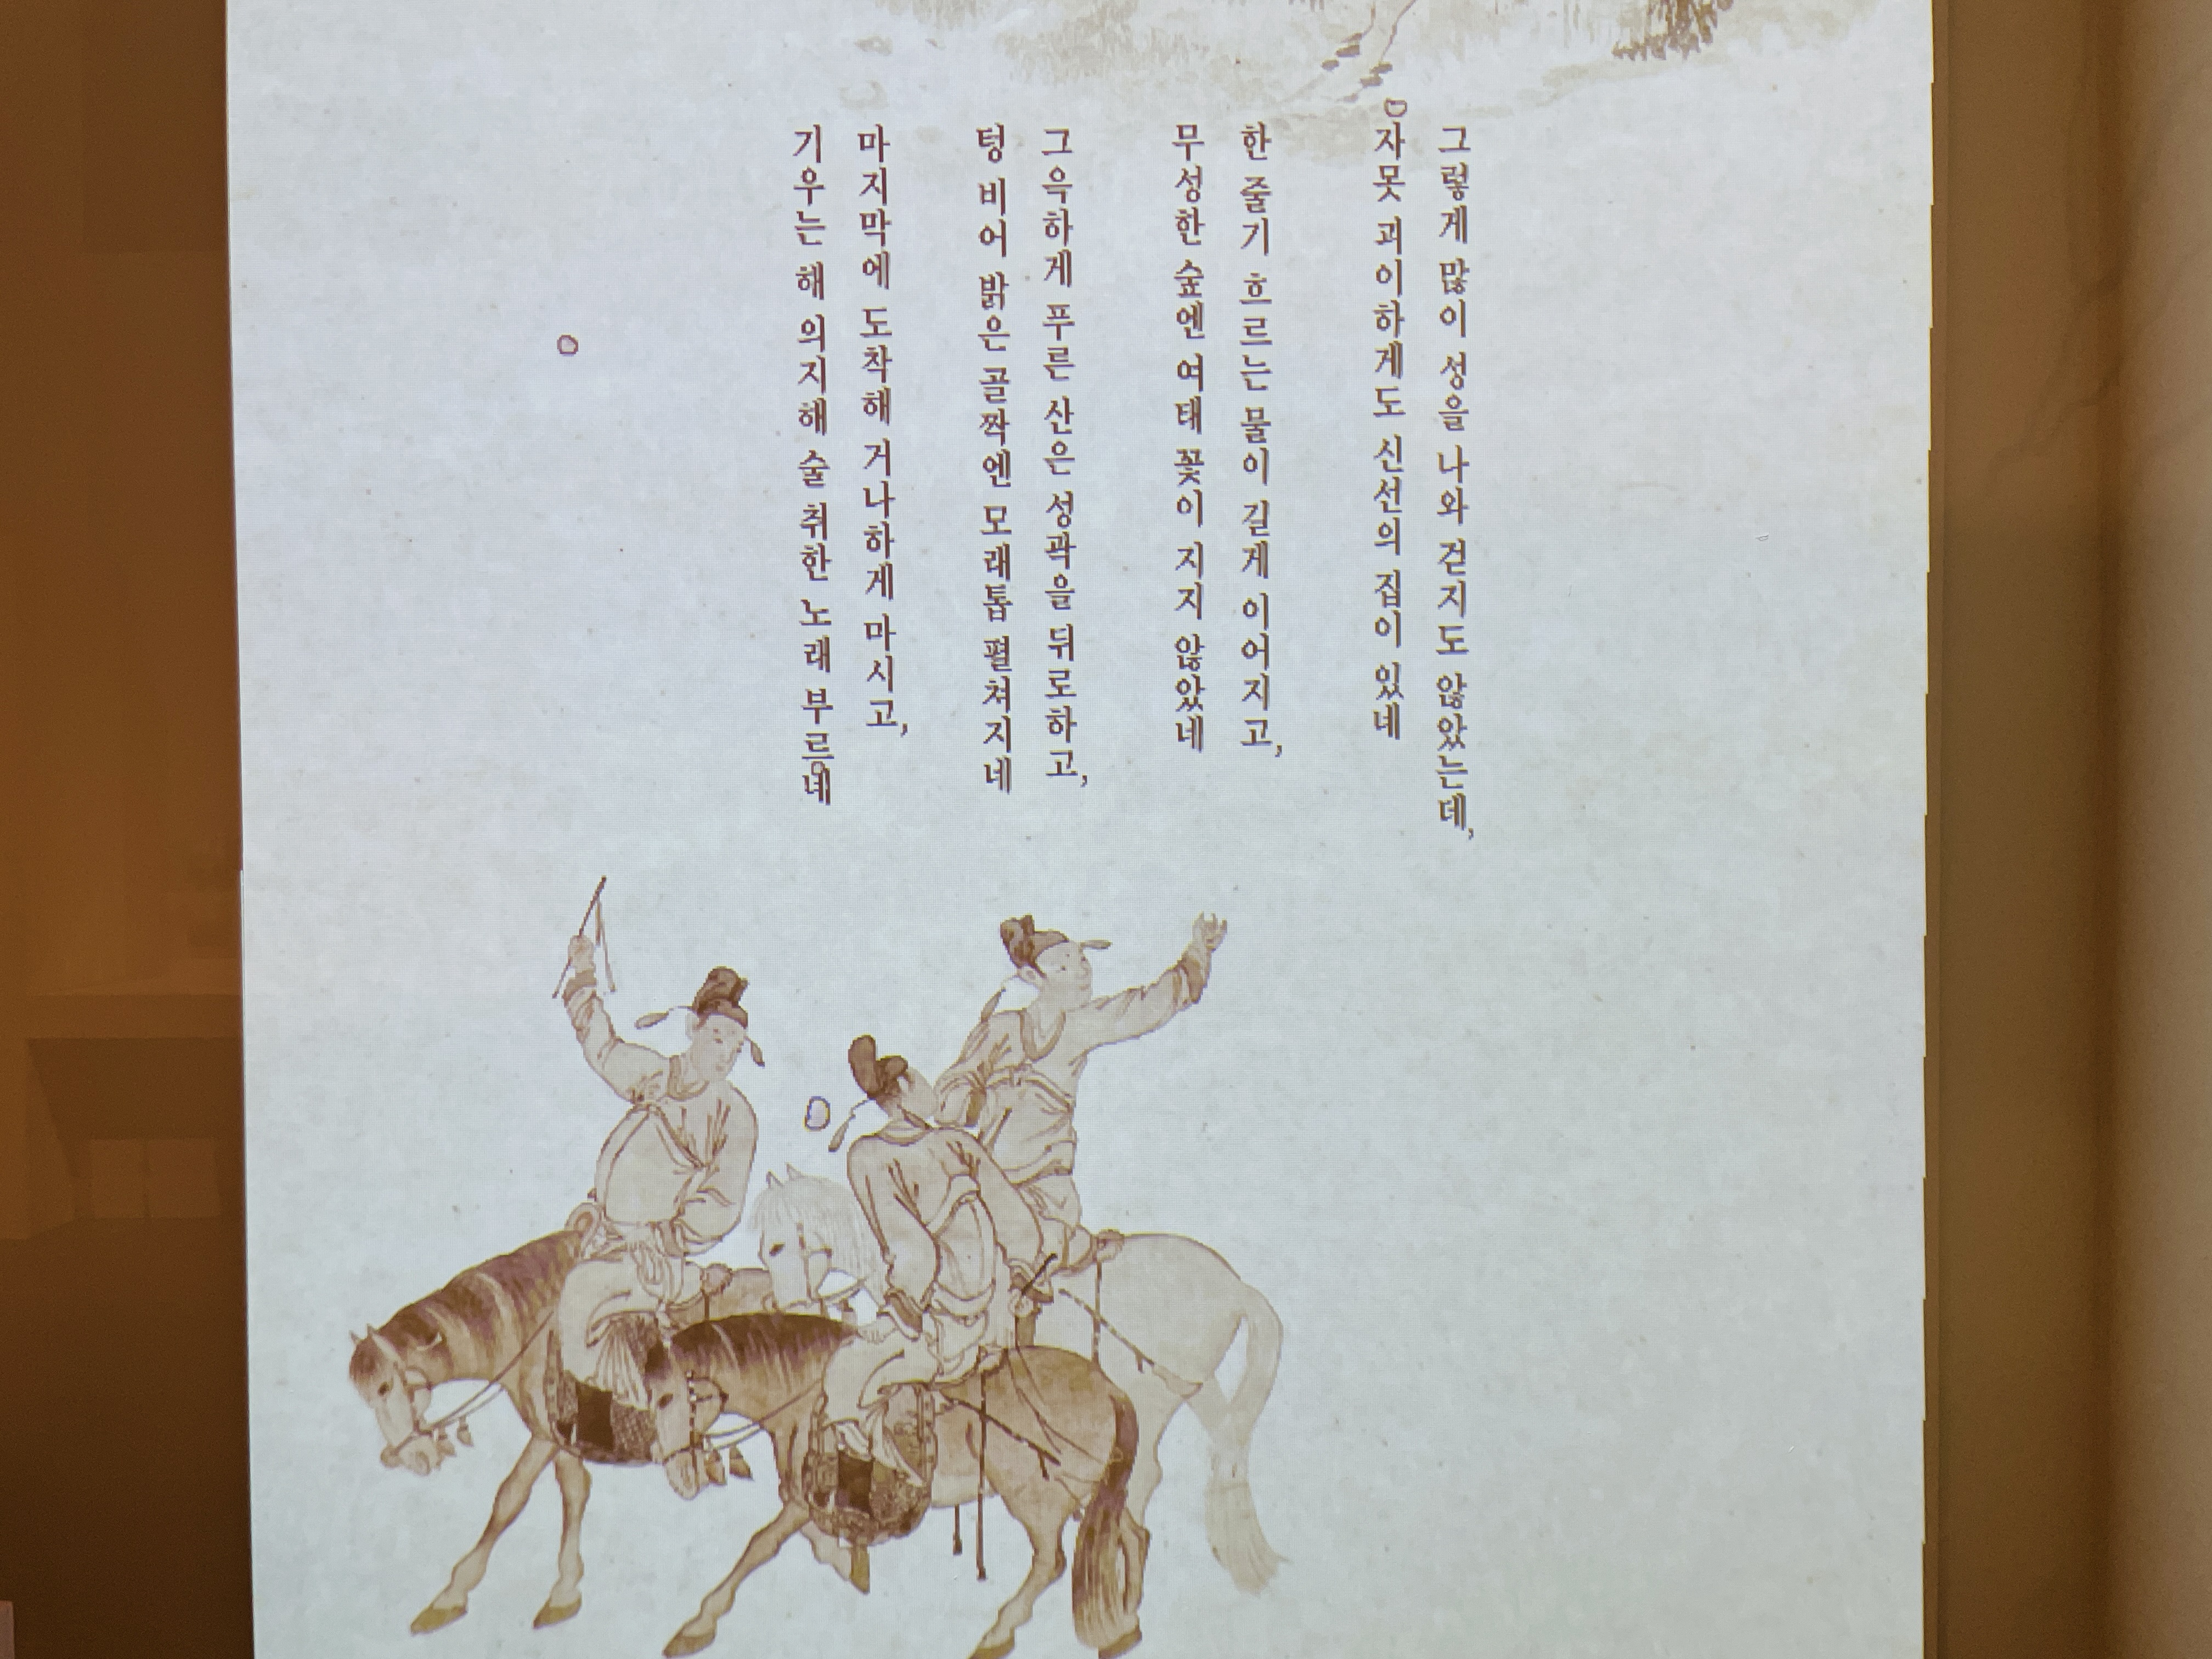 그렇게 많이 성을 나와 걷지도 않았는데,
자못 괴이하게도 신선의 집이 있네
한 줄기 흐르는 물이 길게 이어지고,
무성한 숲엔 여태 꽃이 지지 않았네
그윽하게 푸른 산은 성곽을 뒤로하고,
텅 비어 밝은 골짝엔 모래톱 펼쳐지네
마지막에 도착해 거나하게 마시고,
기우는 해 의지해 술 취한 노래 부르네